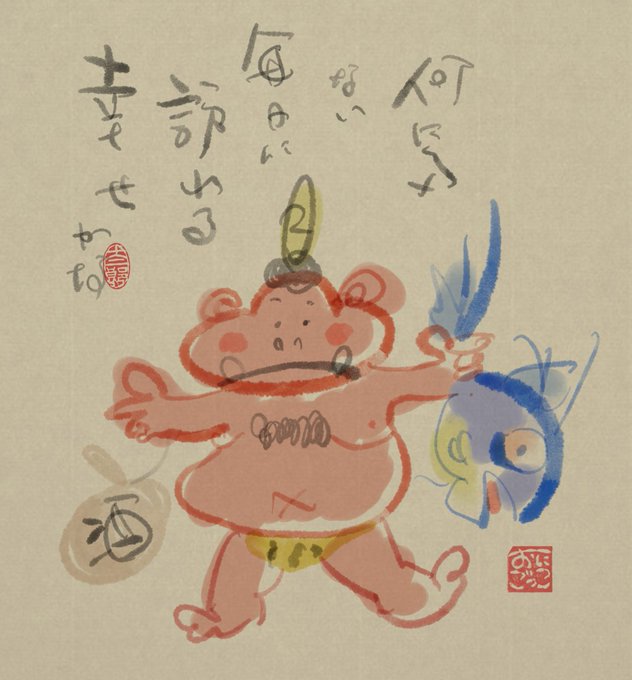 何気
ない
毎日に
訪れる
幸せ
かな
酒